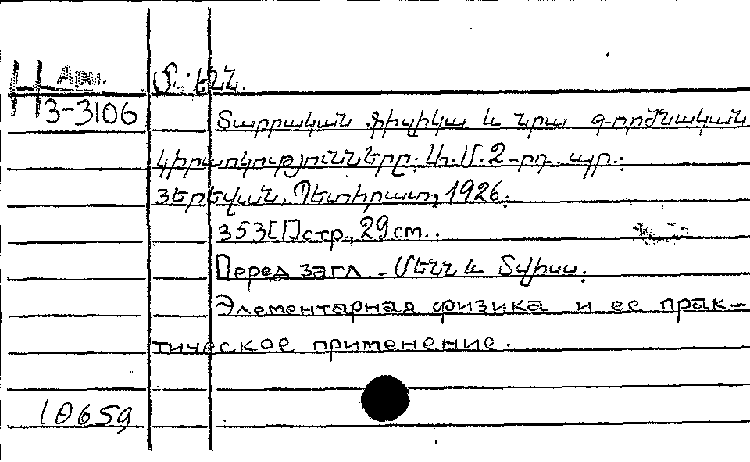 Н Арм.
3-3106
Մ. ԵՆՆ.
Տարրական ֆիզիկա և նրա գործնական
կիրառկությունները. Ա. Մ. 2-րդ. պր.
Յերեվան. Պետհրատ, 1926.
353[1]стр., 29 см.
Перед загл. Մենն և Տվիսս.
Элементарная физика и ее прак-
тическое применение.
10659